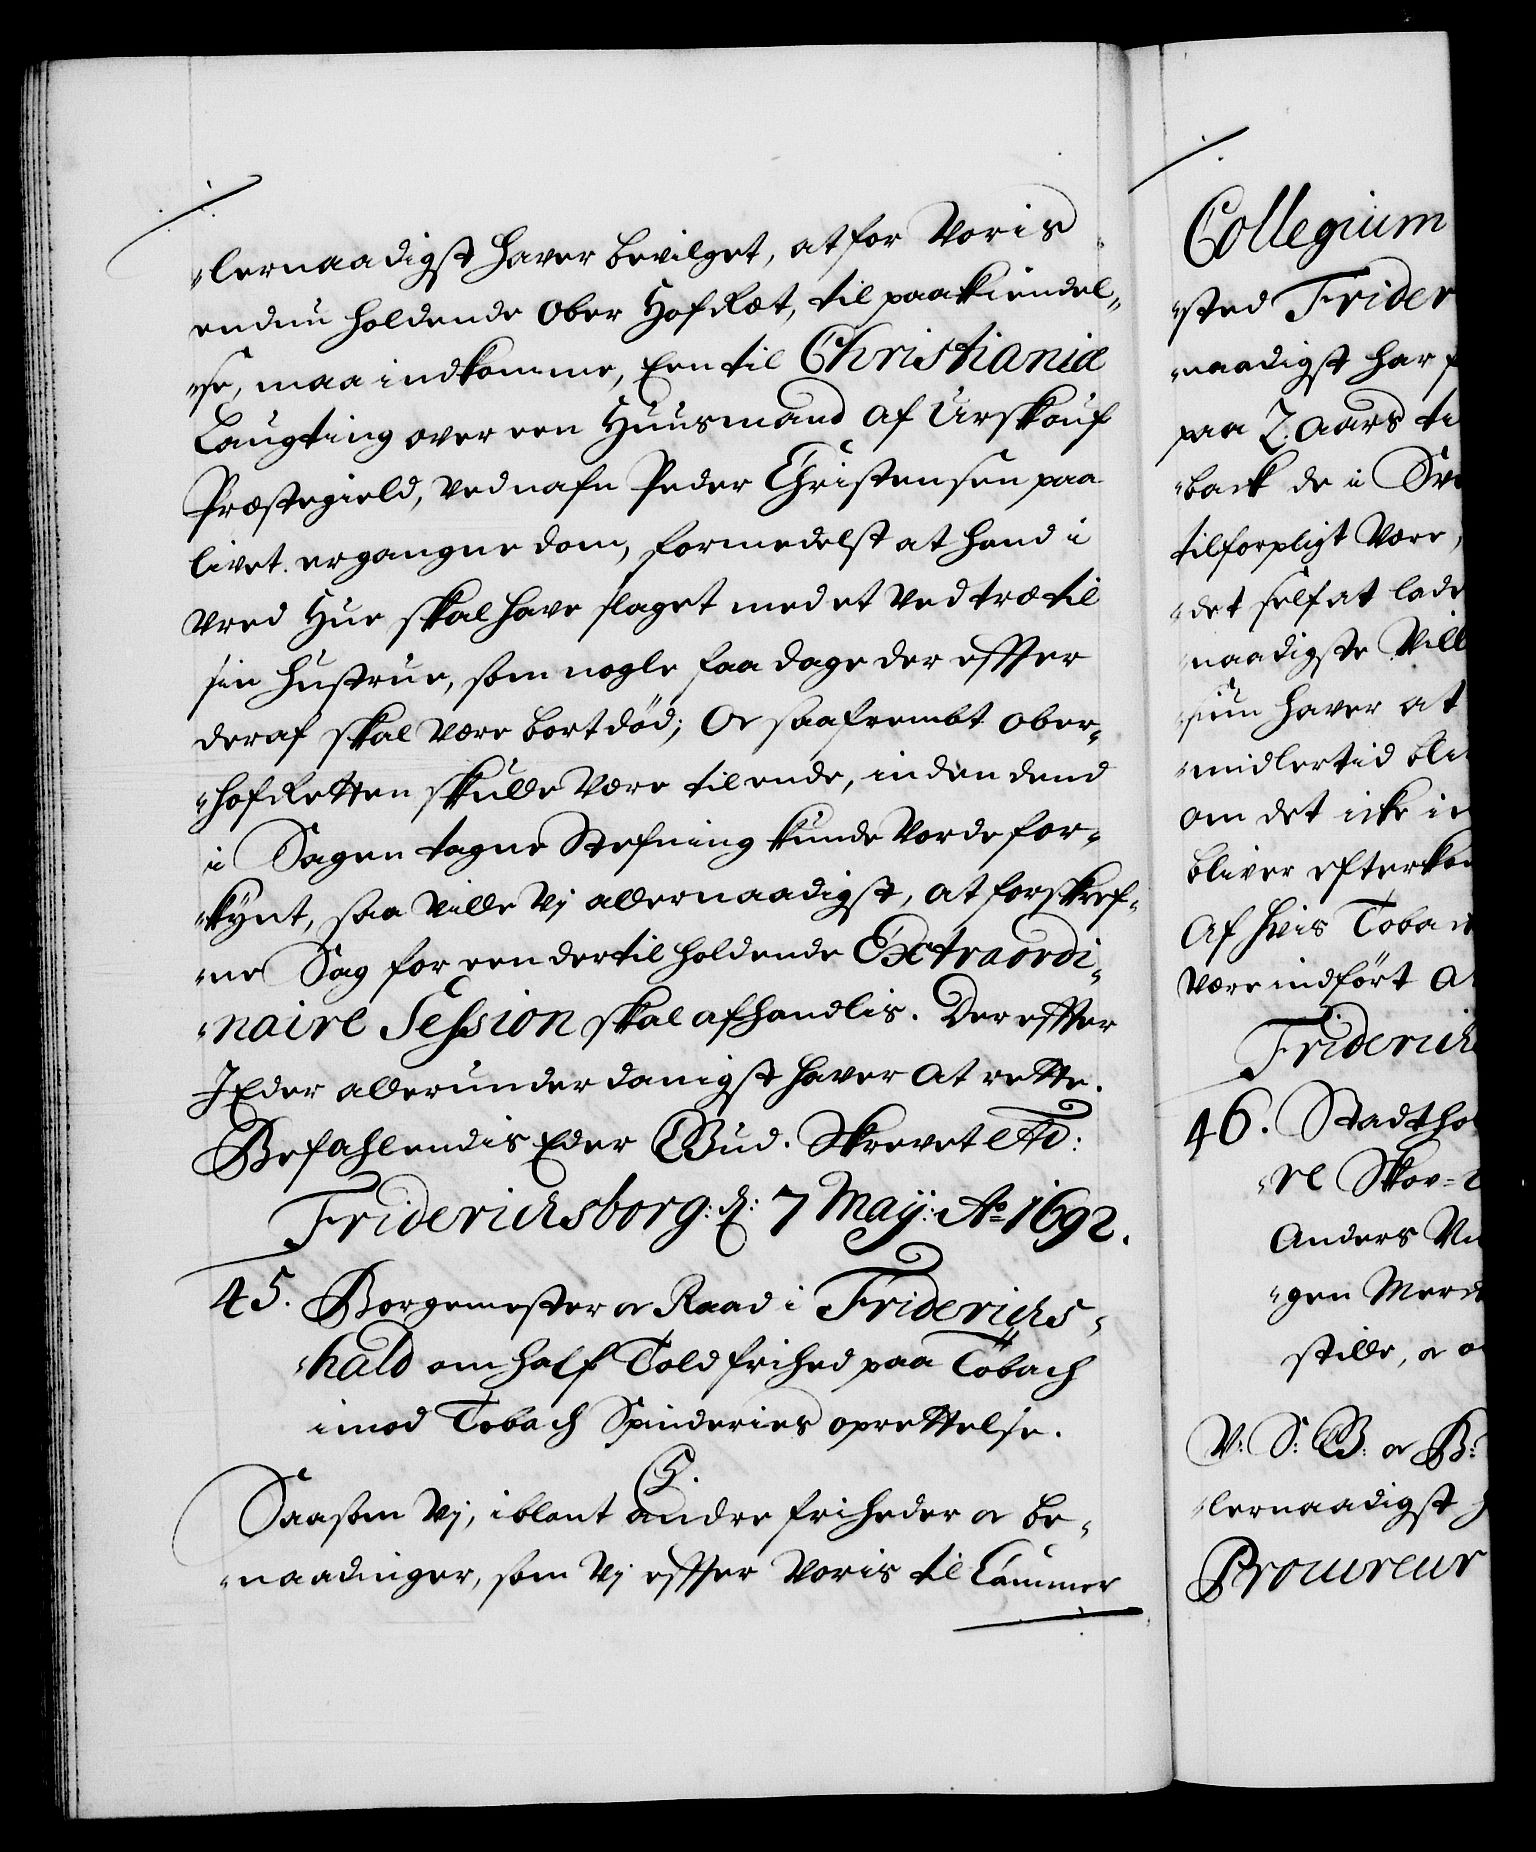 "lernaadigst hafver bevilget, at for Voris
endnu holdende Ober Hof Ræt, til paakiendel"
"se, maa indkomme, Een til Christianiæ
Laugting over een Huusmand af Urskouf
Præstegield, ved nafn Peder Christensen paa
livet ergangne dom, formedelst at hand i
vred Hue skal have slaget med et Ved træ til
sin Hustrue, som nogle faa dage der effter
deraf skal være bortdød; Oc saafrembt Ober"
"hof Retten skulle være til ende, inden dend
i Sagen tagne Stefning kunde vorde for"
"kynt, saa ville Vj allernaadigst, at forskref"
"ne Sag for een dertil holdende Extraordi"
"naire Session skal afhandlis. Der effter
I Eder allerunderdanigst hafver at rette.
Befahlendis Eder Gud. Skrevet etc:
Friderichsborg: d: 7 Maij: Ao 1692.
45. Borgemester oc Raad i Friderichs"
"hald om half Told frihed paa Tobach
imod Tobach Spinderies oprettelse.
C5.
Saasom Vj, iblant andre friheder oc be"
"naadinger, som Vj effter Voris til Cammer
Collegium
"sted Frider
"naadigst har
paa 2. Aars ti
"back de i
tilforpligt være,
"det self at lade
"naadigste Vill
haver at
"midlertid bli
om det icke i
bliver efterkom
Af hvis Toba
være indført
Friderichs
46. Stadthol
"re Skov=
Anders
"gen
stille, oc
V: S: G: oc B:
"lernaadigst
Procureur